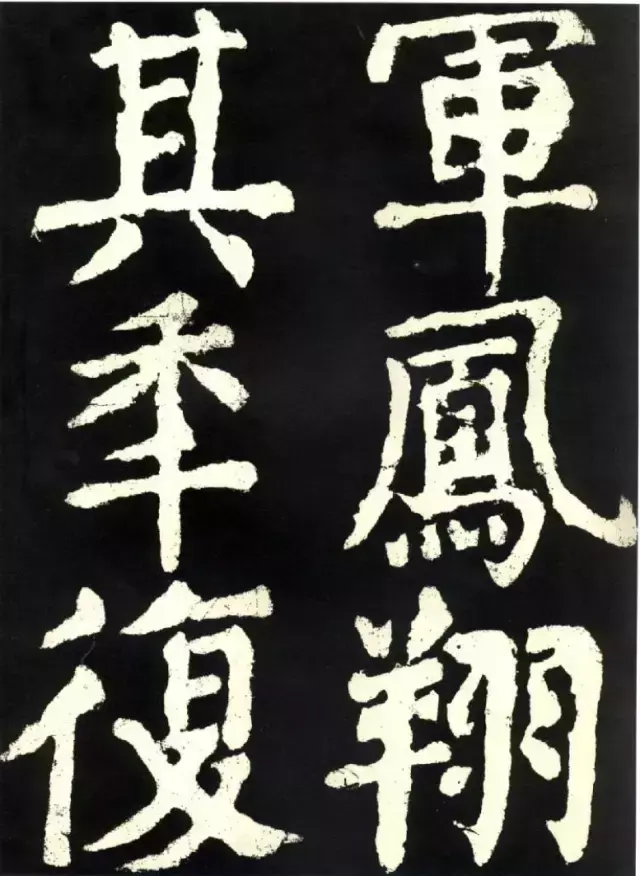 軍鳳翔
其秊復